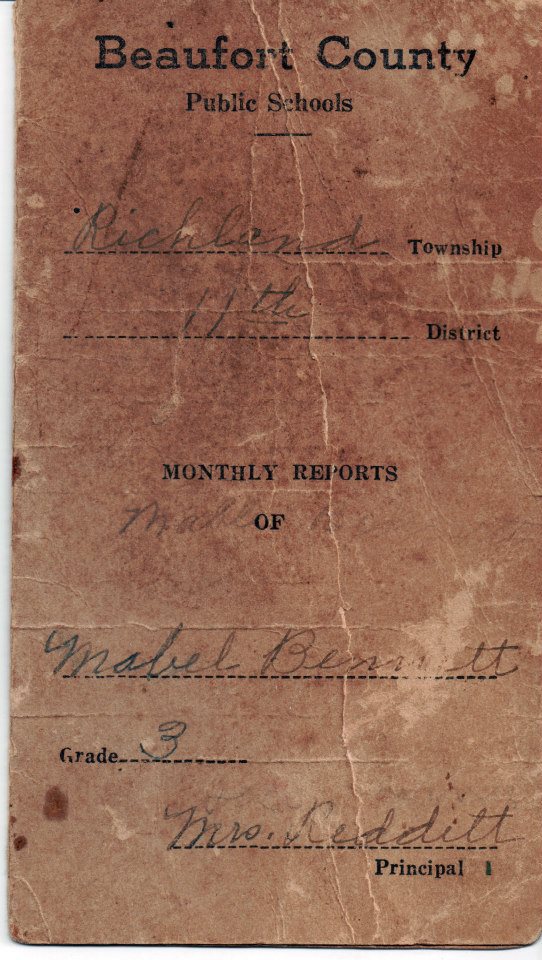 Beaufort County
Public Schools
Richland Township
11th District
MONTHLY REPORTS
OF
Mabel Bennett
Grade 3
Mrs. Redditt
Principal